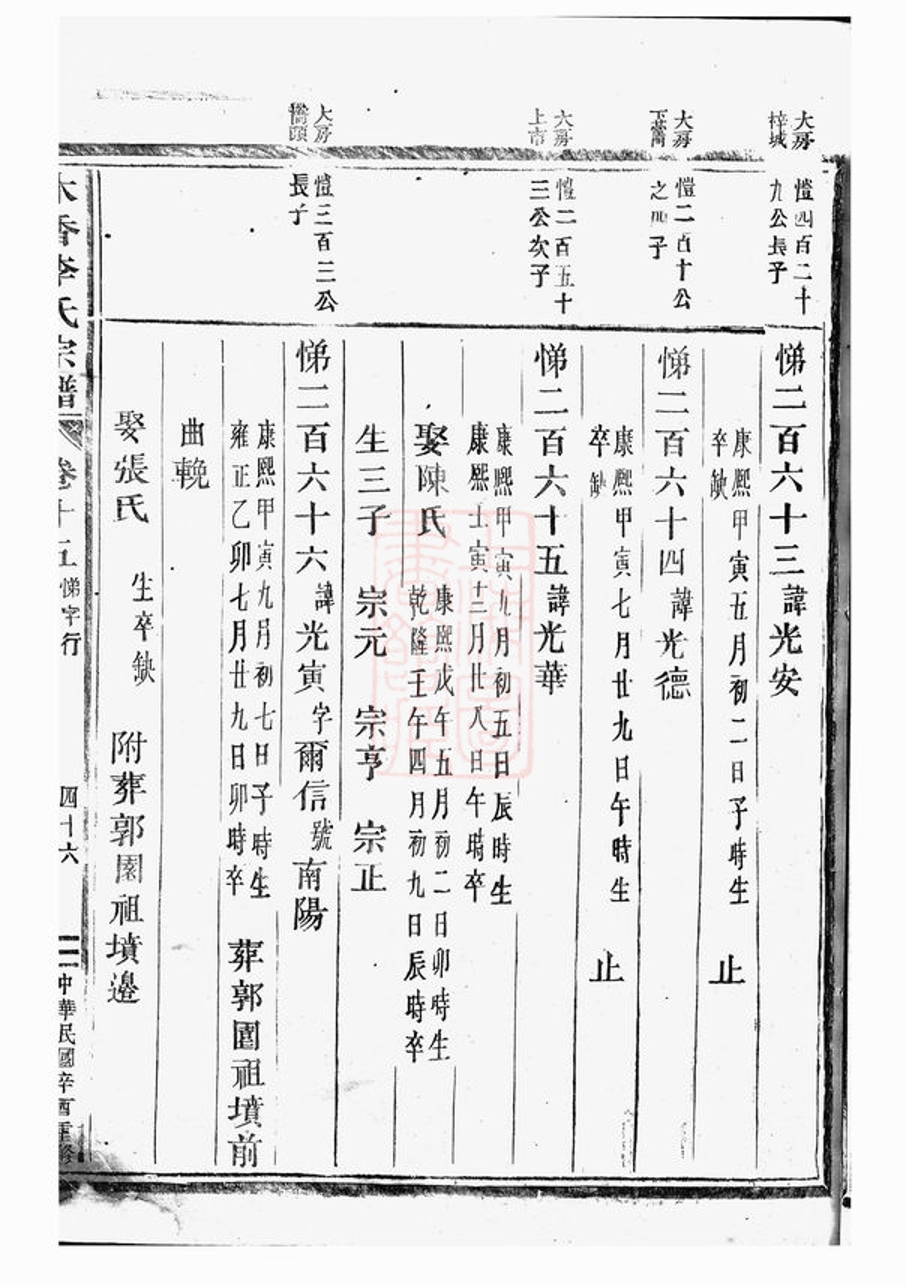 大房
梓城
愷四百二十
九公長子
悌二百六十三諱光安
康熙甲寅五月初二日子時生
卒缺
止
大房
下蕭
愷二百十公
之四子
悌二百六十四諱光德
康熙甲寅七月廿九日午時生
卒缺
止
六房
上市
愷二百五十
三公次子
悌二百六十五諱光華
康熙甲寅九月初五日辰時生
康熙壬寅十二月廿八日午時卒
娶陳氏
康熙戊午五月初二日卯時生
乾隆壬午四月初九日辰時卒
生三子 宗元 宗亨 宗正
大房
橋頭
愷三百三公
長子
悌二百六十六諱光寅字爾信號南陽
康熙甲寅九月初七日子時生
雍正乙卯七月廿九日卯時卒
葬郭園祖墳前
曲輓
娶張氏 生卒缺 附葬郭園祖墳邊
木香李氏宗譜 卷十五 悌字行 四十六 中華民國辛酉重修